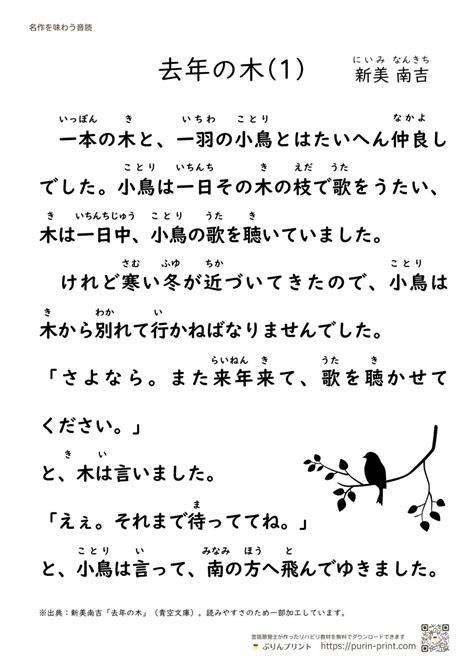 名作を味わう音読
去年の木(1)
にいみ なんきち
新美 南吉
いっぽん き いちわ ことり なかよ
一本の木と、一羽の小鳥とはたいへん仲良し
ことり いちんち き えだ うた
でした。小鳥は一日その木の枝で歌をうたい、
き いちんちじゅう ことり うた き
木は一日中、小鳥の歌を聴いていました。
さむ ふゆ ちか ことり
けれど寒い冬が近づいてきたので、小鳥は
き わか い
木から別れて行かねばなりませんでした。
らいねん き うた き
「さよなら。また来年来て、歌を聴かせて
ください。」
き い
と、木は言いました。
ま
「えぇ。それまで待っててね。」
ことり い みなみ ほう と
と、小鳥は言って、南の方へ飛んでゆきました。
※出典：新美南吉「去年の木」（青空文庫）。読みやすさのため一部加工しています。
言語聴覚士が作ったリハビリ教材を無料でダウンロードできます
ぷりんプリント https://purin-print.com/